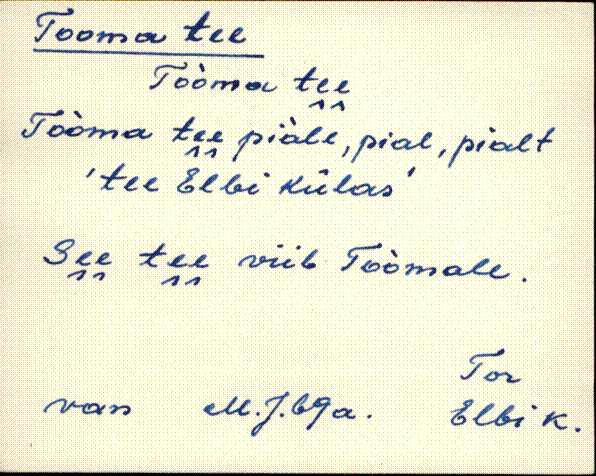 Tooma tee
Toòma te̮e̮
Toòma te̮e̮ piàle, pial, pialt
'tee Elbi külas'
Se̮e̮ te̮e̮ viib Toòmale.
Tor
van M.J. 69a. Elbi k.